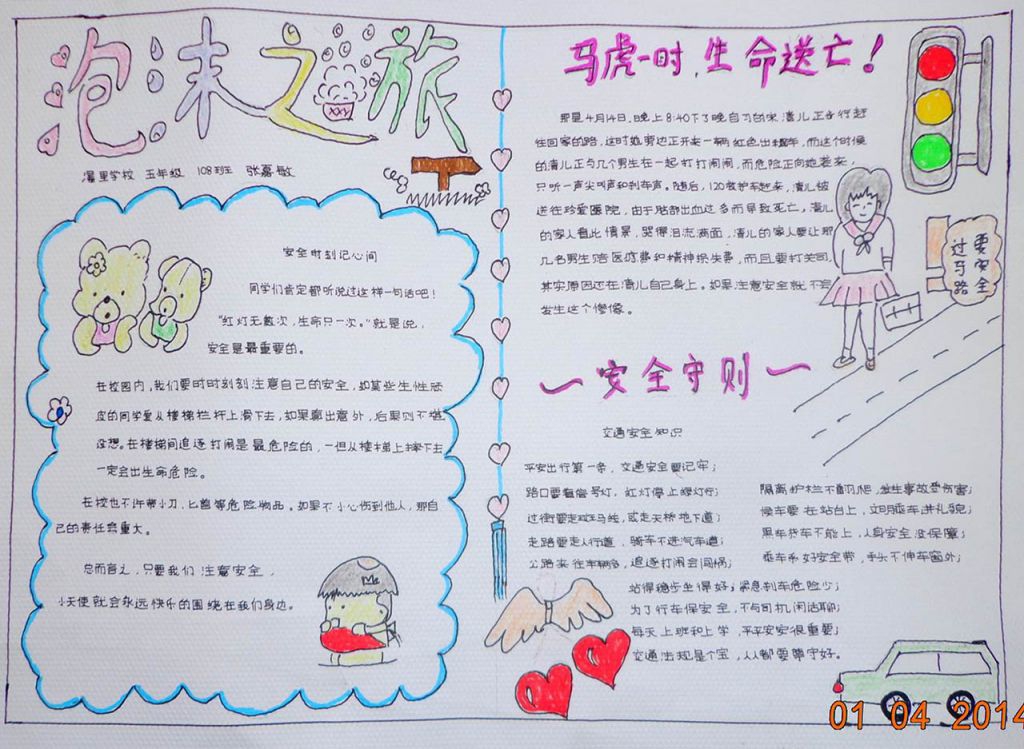 泡沫之旅
学校 五年级 108班 张嘉敏
安全时刻记心间
同学们肯定都听说过这样一句话吧！
“红灯无数次，生命只一次。”就是说，
安全是最重要的。
在校园内，我们要时时刻刻注意自己的安全，如某些生性顽
皮的同学爱从楼梯栏杆上滑下去，如果出意外，后果则不堪
设想。在楼梯间追逐打闹是最危险的，一但从楼梯上摔下去
一定会出生命危险。
在校也不许带小刀、匕首等危险物品。如果不小心伤到他人，那自
己的责任重大。
总而言之，只要我们注意安全，
小天使就会永远快乐的围绕在我们身边。
马虎一时，生命送亡！
那是4月14日，晚上8:40下了晚自习的宋清儿正行赶
往回家的路，这时她旁边正开来一辆红色出租车，而这个时候
的清儿正与几个男生在一起打打闹闹，而危险正向她袭来，
只听一声尖叫声和刹车声。随后，120救护车赶来，清儿被
送往珍爱医院，由于出血过多而导致死亡，清儿
的家人看此情景，哭得泪流满面，清儿的家人要让那
几名男生赔医疗费和精神损失费，而且要打关司，
其实原因还在清儿自己身上。如果注意安全就不会
发生这个惨像。
要安全
过马路
安全守则
交通安全知识
平安出行第一条，交通安全要记牢；
路口要看信号灯，红灯停止绿灯行；
过街要走斑马线，或走天桥地下道；
走路要走人行道，骑车不进汽车道；
公路来往车辆多，追逐打闹会闯祸；
隔离护栏不翻爬，发生事故受伤害；
候车要在站台上，文明乘车讲礼貌；
黑车货车不能上，人身安全没保障；
乘车系好安全带，手头不伸车窗外；
站得稳步坐得好，紧急刹车危险少；
为了行车保安全，不与司机闲话聊；
每天上班和上学，平平安安很重要；
交通法规是个宝，人人都要遵守好。
01 04 2014